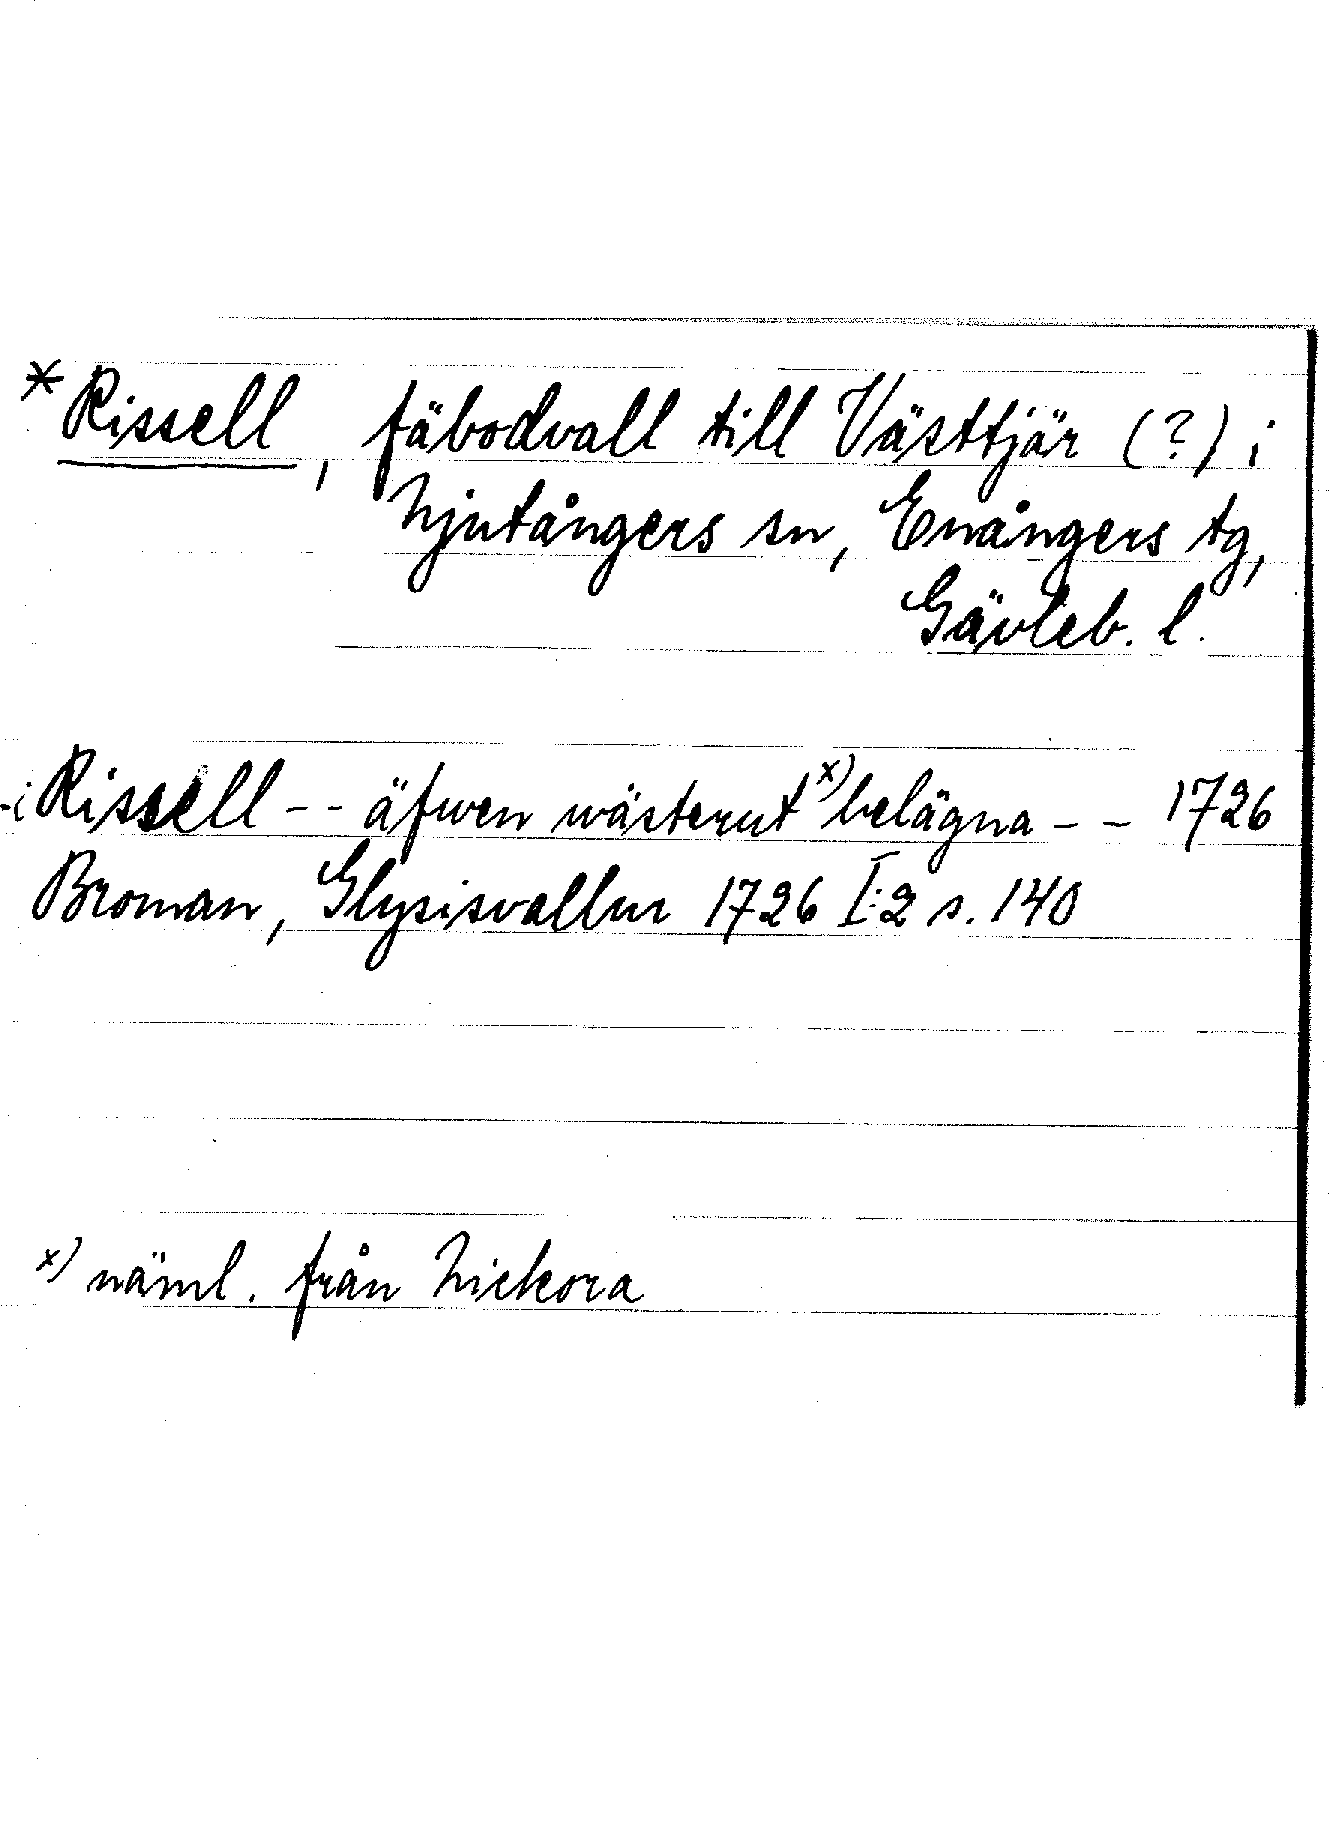 * Rissell, fäbodvall till Västtjär (?) i
Njutångers sn, Enångers tg,
Gävleb. l.
-i Rissell - - äfwen wästerut x) belägna - - 1726
Broman, Glysisvallur 1726 I:2 s. 140
x) näml. från Nickora